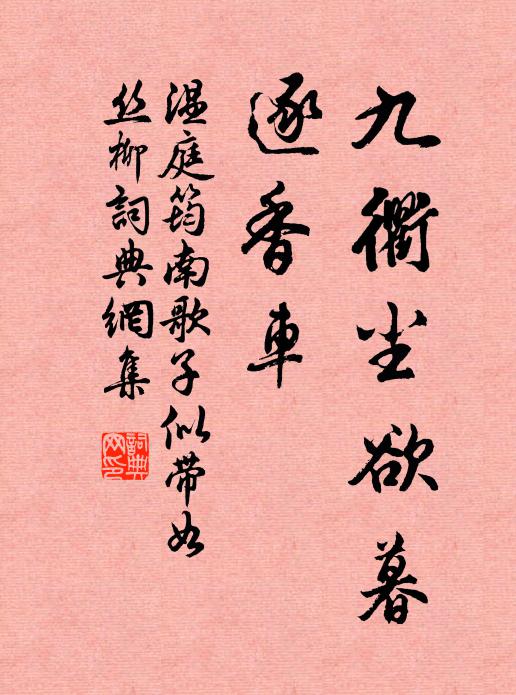 九衢尘欲暮
逐香車
温庭筠南歌子似带如
丝柳詞典網集
詞典
网印